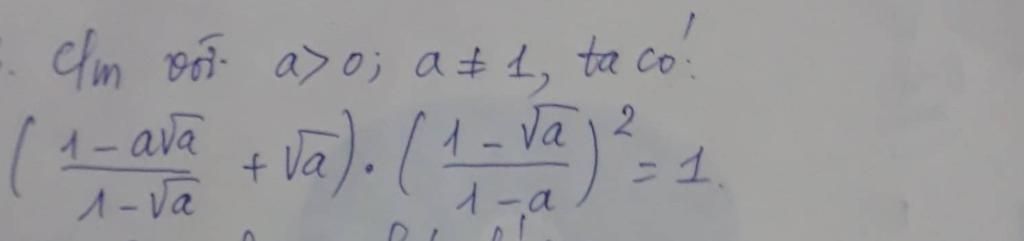 C/m với a>0; a≠1, ta có:
(\frac{1-a\sqrt{a}}{1-\sqrt{a}} + \sqrt{a}) \cdot (\frac{1-\sqrt{a}}{1-a})^2 = 1.